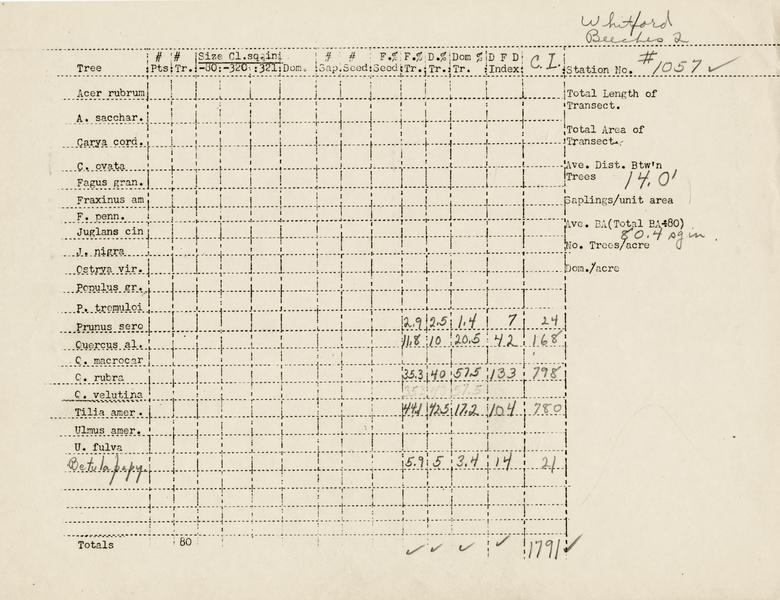 Whitford
Beeches 2
# # Size Cl.sq.ini # # F.% F.% D.% Dom % D F D C. I. Station No. #1057 ✓
Tree Pts. Tr. -80 -320 321 Dom. Sap. Seed Seed Tr. Tr. Tr. Index
Acer rubrum Total Length of
Transect.
A. sacchar.
Total Area of
Carya cord. Transect.
C. ovata Ave. Dist. Btw'n
Trees 14.0'
Fagus gran.
Fraxinus am Saplings/unit area
F. penn.
Juglans cin Ave. BA(Total BA÷80)
80.4 sq in.
J. nigra No. Trees/acre
Ostrya vir. Dom./acre
Populus gr.
P. tremuloi
Prunus sero 2.9 2.5 1.4 7 24
Quercus al. 11.8 10 20.5 42 168
Q. macrocar
Q. rubra 35.3 40 57.5 133 798
Q. velutina
Tilia amer. 44.1 42.5 17.2 104 780
Ulmus amer.
U. fulva
Betula papy. 5.9 5 3.4 14 21
Totals 80 ✓ ✓ ✓ ✓ 1791 ✓